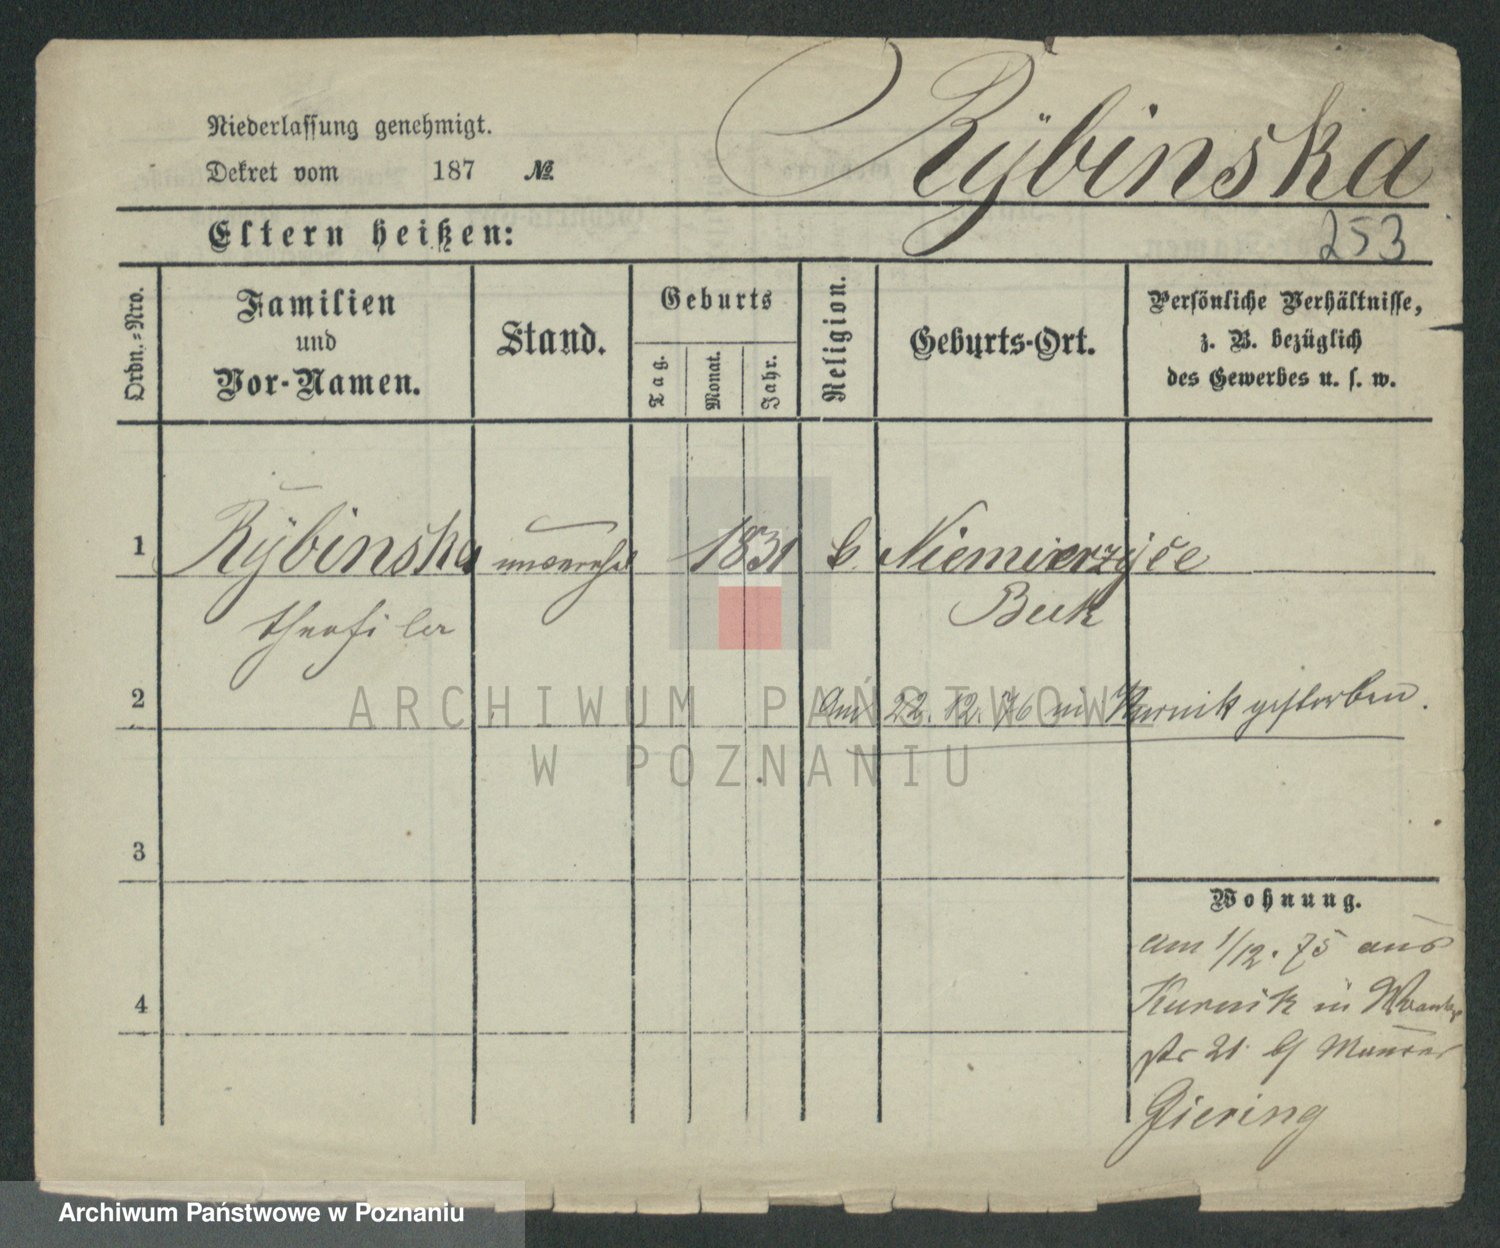 Rÿbinska
Niederlassung genehmigt.
Dekret vom 187 №
Eltern heißen:
253
Ordn.=Nro.
Familien
und
Vor-Namen.
Stand.
Geburts
Tag.
Monat.
Jahr.
Religion.
Geburts-Ort.
Persönliche Verhältnisse,
z. B. bezüglich
des Gewerbes u. s. w.
1 Rÿbinska 1831 Niemierzÿce
Buk
2 Am 22.12.76 in Kurnik gestorben.
3
Wohnung.
am 1/12.75 aus
Kurnik in
4
str 21 Maurer
Giering
ARCHIWUM PAŃSTWOWE
W POZNANIU
Archiwum Państwowe w Poznaniu